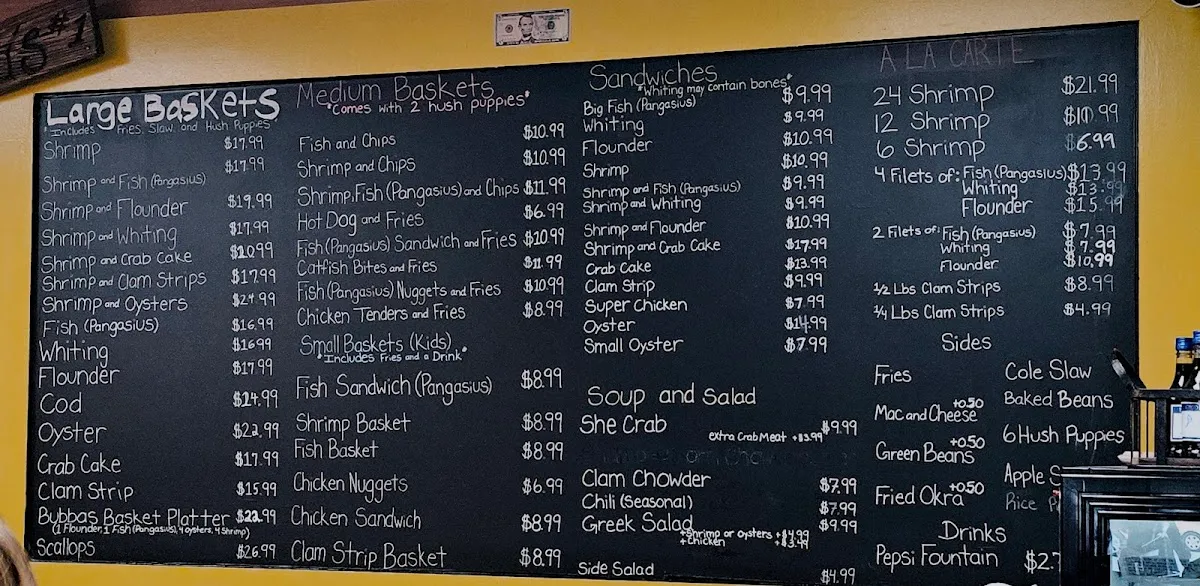 S #1
Large Baskets
*Includes Fries, Slaw, and Hush Puppies*
Shrimp $17.99
Shrimp and Fish (Pangasius) $17.99
Shrimp and Flounder $19.99
Shrimp and Whiting $17.99
Shrimp and Crab Cake
Shrimp and Clam Strips $17.99
Shrimp and Oysters
Fish (Pangasius) $16.99
Whiting $16.99
Flounder $17.99
Cod
Oyster $22.99
Crab Cake $17.99
Clam Strip $15.99
Bubbas Basket Platter
(1 Flounder, 1 Fish (Pangasius), 4 oysters, 4 Shrimp)
Scallops $26.99
Medium Baskets
*Comes with 2 hush puppies*
Fish and Chips $10.99
Shrimp and Chips $10.99
Shrimp, Fish (Pangasius) and Chips $11.99
Hot Dog and Fries $6.99
Fish (Pangasius) Sandwich and Fries $10.99
Catfish Bites and Fries $11.99
Fish (Pangasius) Nuggets and Fries $10.99
Chicken Tenders and Fries $8.99
Small Baskets (Kids)
*Includes Fries and a Drink*
Fish Sandwich (Pangasius) $8.99
Shrimp Basket $8.99
Fish Basket $8.99
Chicken Nuggets $6.99
Chicken Sandwich $8.99
Clam Strip Basket $8.99
Sandwiches
*Whiting may contain bones*
Big Fish (Pangasius) $9.99
Whiting $9.99
Flounder $10.99
Shrimp $10.99
Shrimp and Fish (Pangasius) $9.99
Shrimp and Whiting $9.99
Shrimp and Flounder $10.99
Shrimp and Crab Cake $17.99
Crab Cake $13.99
Clam Strip $9.99
Super Chicken $7.99
Oyster $14.99
Small Oyster $7.99
Soup and Salad
She Crab $9.99
extra Crab Meat +$3.99
Clam Chowder $7.99
Chili (Seasonal) $7.99
Greek Salad $9.99
+Shrimp or oysters +$4.99
+Chicken +$3.99
Side Salad $4.99
A LA CARTE
24 Shrimp $21.99
12 Shrimp $10.99
6 Shrimp $6.99
4 Filets of: Fish (Pangasius) $13.99
Whiting $13.99
Flounder $15.99
2 Filets of: Fish (Pangasius) $7.99
Whiting $7.99
Flounder $10.99
1/2 Lbs Clam Strips $8.99
1/4 Lbs Clam Strips $4.99
Sides
Fries
Mac and Cheese +0.50
Green Beans +0.50
Fried Okra +0.50
Cole Slaw
Baked Beans
6 Hush Puppies
Apple S
Rice P
Drinks
Pepsi Fountain $2.7